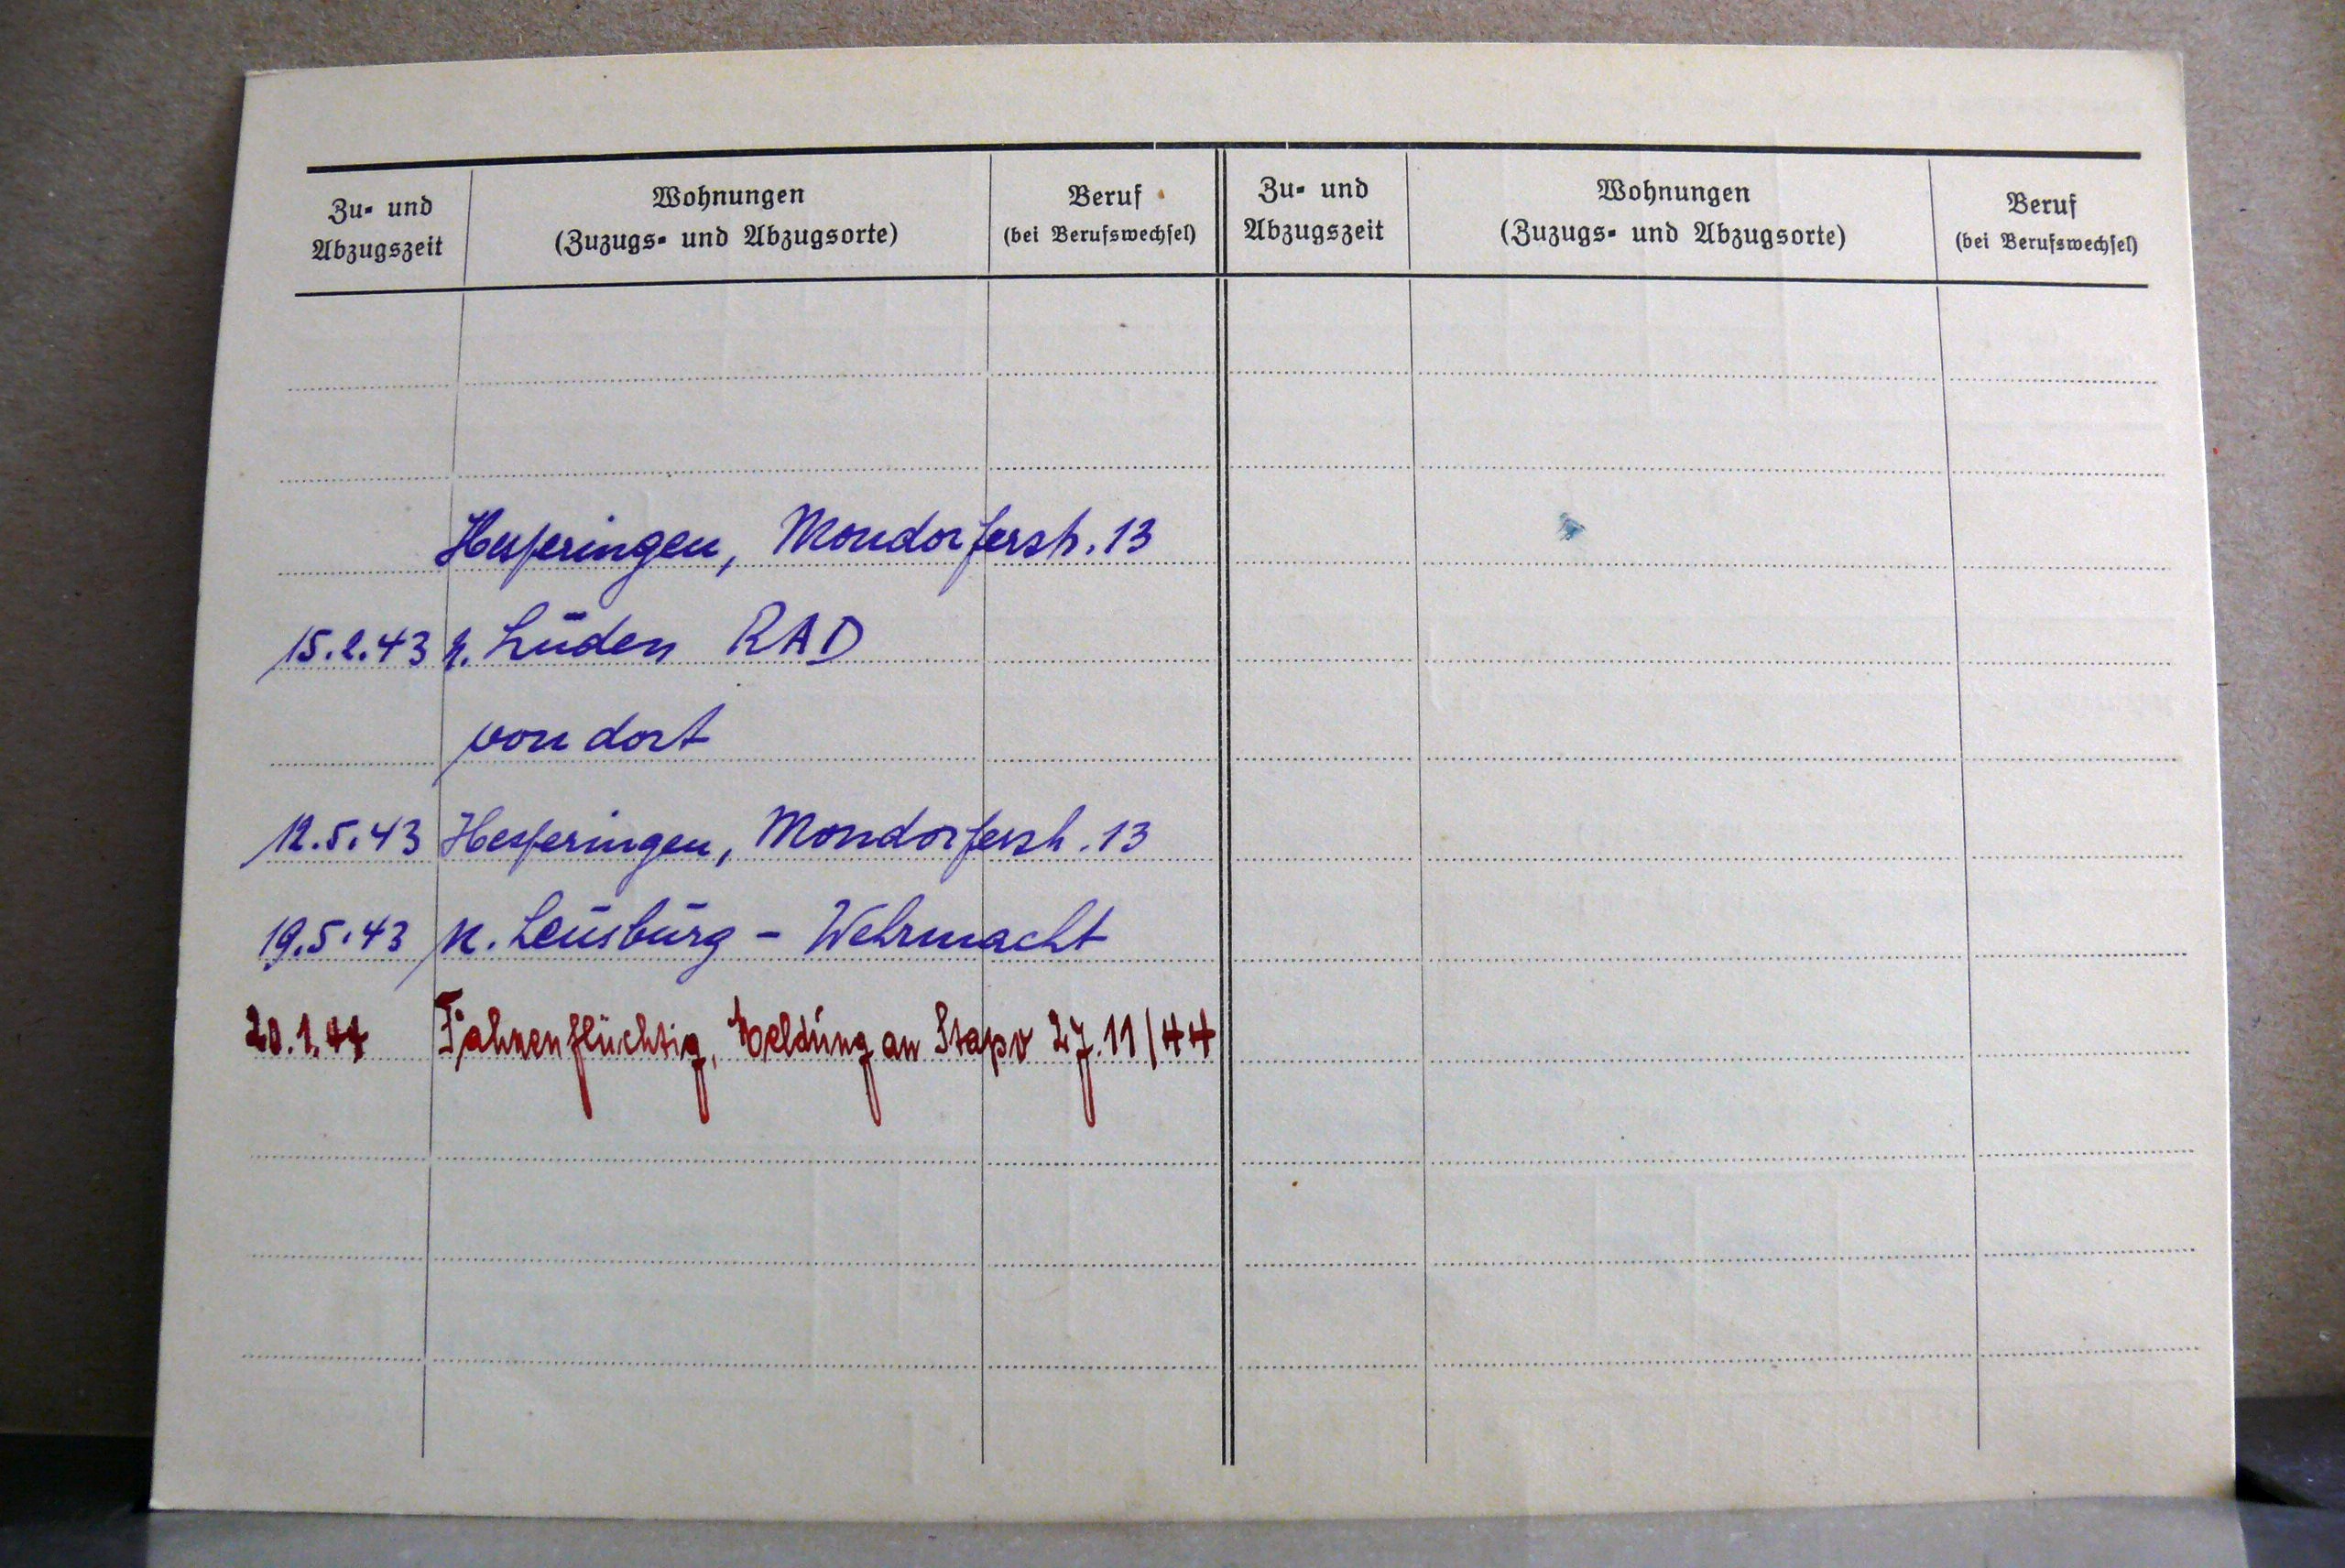 Zu- und
Abzugszeit
Wohnungen
(Zuzugs- und Abzugsorte)
Beruf
(bei Berufswechsel)
Zu- und
Abzugszeit
Wohnungen
(Zuzugs- und Abzugsorte)
Beruf
(bei Berufswechsel)
Hesperingen, Mondorferstr. 13
15.2.43 n. Lüden RAD
von dort
12.5.43 Hesperingen, Mondorferstr. 13
19.5.43 n. Leusburg - Wehrmacht
20.1.44 Fahnenflüchtig, Meldung an Stapo 27.11/44